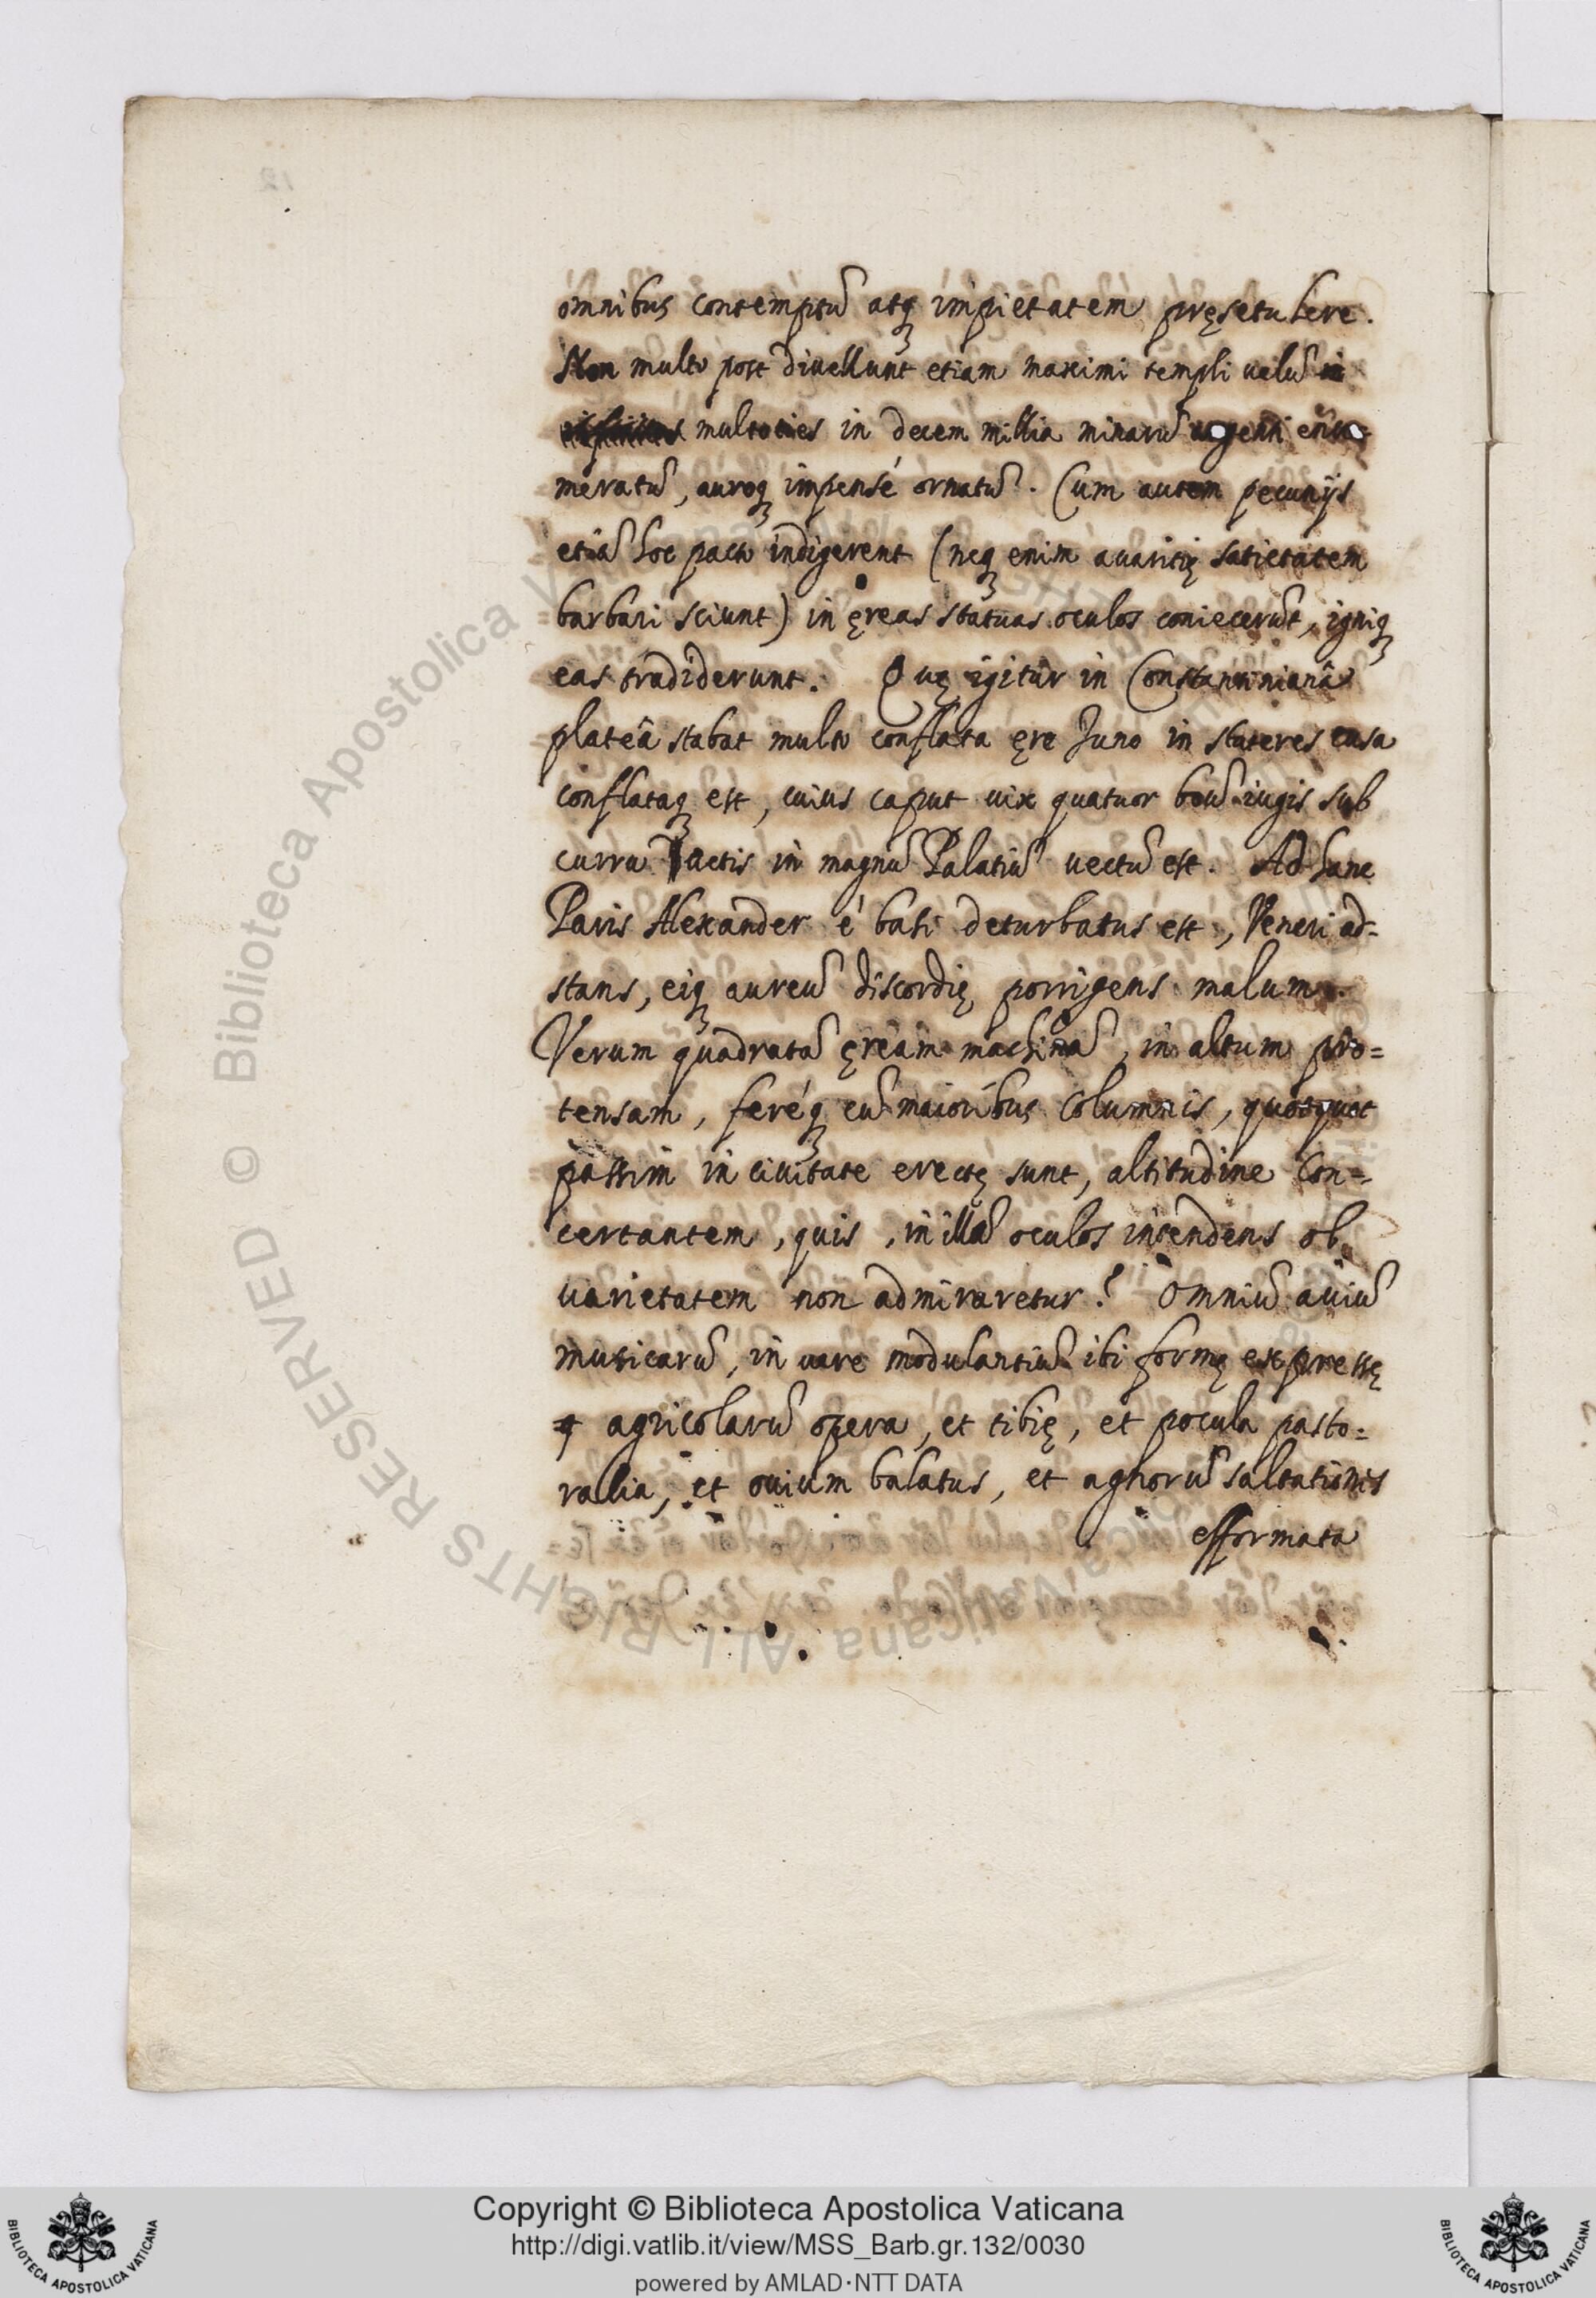 omnibus contemptũ atq; impietatem pręsetulere.
Non multo post divellunt etiam maximi templi uelũ
multoties in decem millia minarũ argenti enu-
meratũ, auroq; impensé ornatũ. Cum autem pecunijs
etiã hoc pacto indigerent (neq; enim avaritię satietatem
barbari sciunt) in ęreas statuas oculos coniecerũt, igniq;
eas tradiderunt. Quę igitur in Constantinianâ
plateâ stabat multo conflata ęre Juno in stateres cusa
conflataq; est, cuius caput uix quatuor boũ iugis sub
curru actis in magnũ Palatiũ vectũ est. Ad hanc
Paris Alexander é basi deturbatus est, Veneri ad-
stans, eiq; aureũ discordię porrigens malum.
Verum quadratã ęream machinã, in altum pro=
tensam, feréq; cũ maioribus columnis, quotquot
passim in civitate erectę sunt, altitudine con=
certantem, quis, in illã oculos intendens ob
varietatem non admiraretur? Omniũ aviũ
musicarũ, in vere modulantiũ ibi formę expressę
agricolarũ opera, et tibię, et pocula pasto=
ralia, et ovium balatus, et agnorũ saltationis
efformata
Copyright © Biblioteca Apostolica Vaticana
http://digi.vatlib.it/view/MSS_Barb.gr.132/0030
powered by AMLAD·NTT DATA
BIBLIOTECA APOSTOLICA VATICANA
BIBLIOTECA APOSTOLICA VATICANA
© Biblioteca Apostolica Vaticana ALL RIGHTS RESERVED